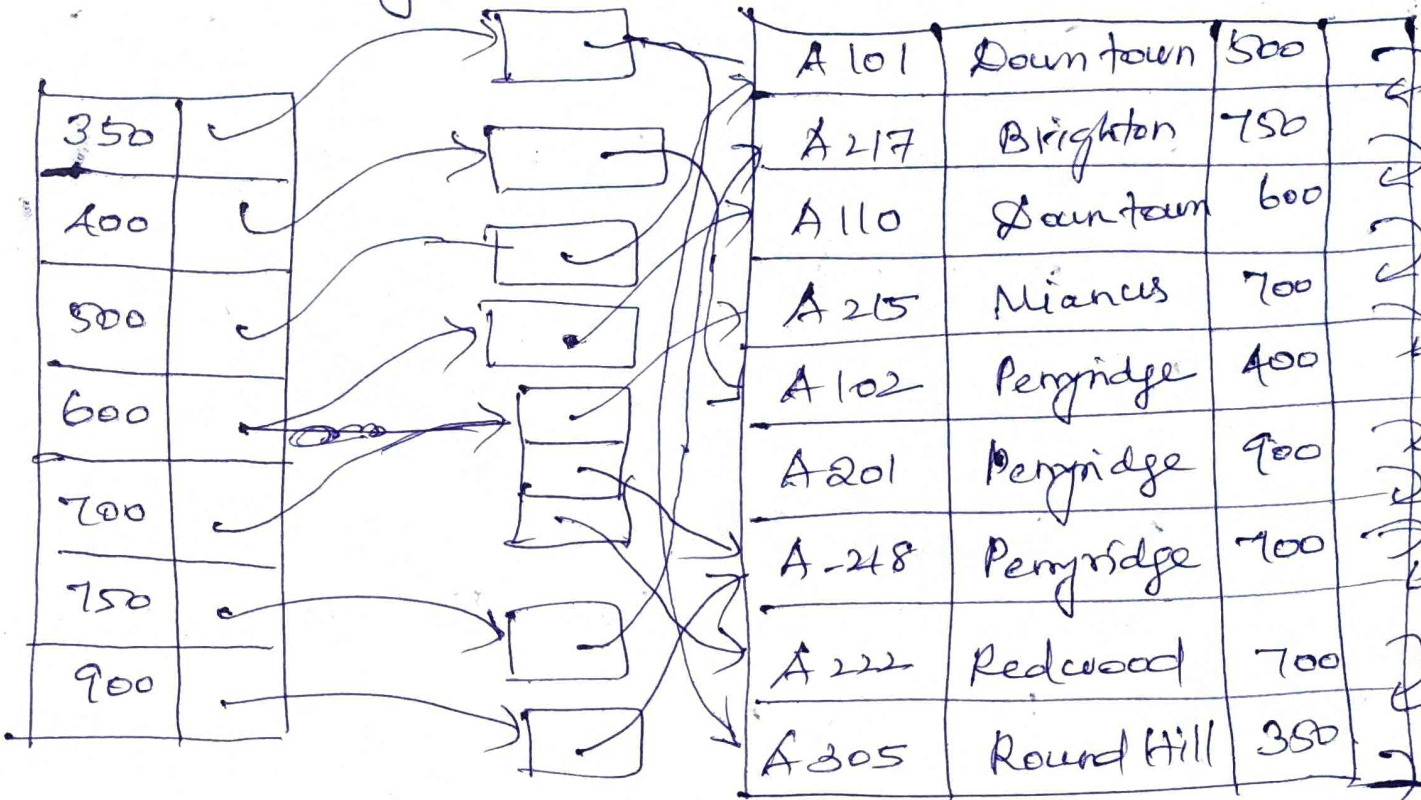 350
400
500
600
700
750
900
A 101 Downtown 500
A 217 Brighton 750
A 110 Downtown 600
A 215 Mianus 700
A 102 Perryridge 400
A 201 Perryridge 900
A-218 Perryridge 700
A 222 Redwood 700
A 305 Round Hill 350